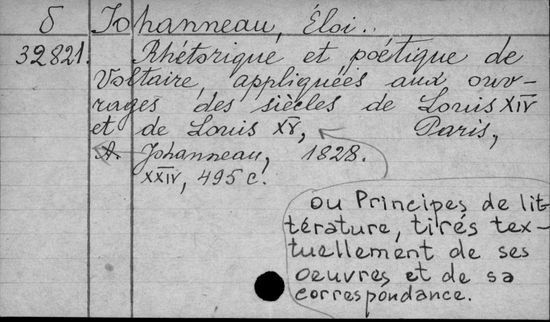 δ Johanneau, Éloi..
32821. Rhétorique et poétique de
Voltaire, appliquées aux ouv-
rages des siècles de Louis XIV
et de Louis XV, Paris,
A. Johanneau, 1828.
XXIV, 495 c.
ou Principes de lit-
térature, tirés tex-
tuellement de ses
oeuvres et de sa
correspondance.